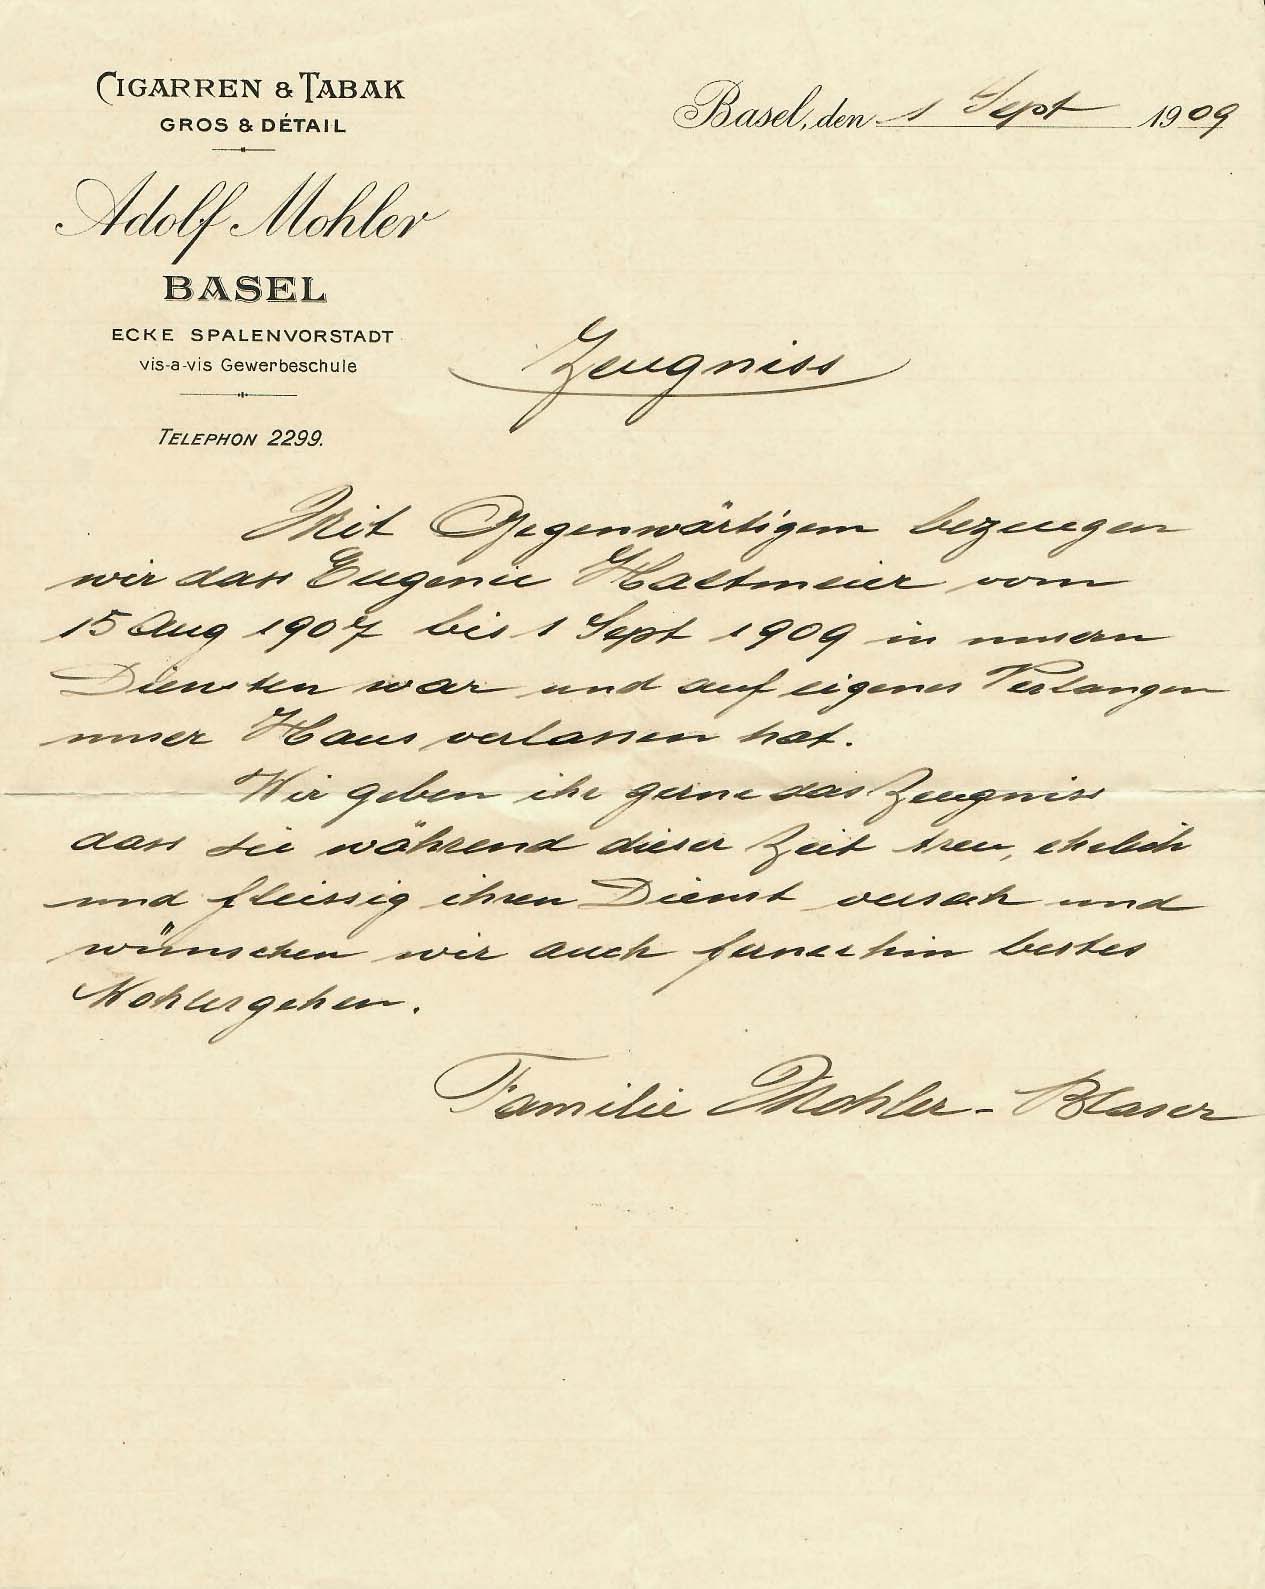 CIGARREN & TABAK
GROS & DÉTAIL
Adolf Mohler
BASEL
ECKE SPALENVORSTADT
vis-a-vis Gewerbeschule
TELEPHON 2299.
Basel, den 1 Sept 1909
Zeugniss
Mit Gegenwärtigem bezeugen
wir dass Eugenie Haltmeier vom
15 Aug 1907 bis 1 Sept 1909 in unsern
Diensten war und auf eigenes Verlangen
unser Haus verlassen hat.
Wir geben ihr gerne das Zeugniss
dass sie während dieser Zeit treu, ehrlich
und fleissig ihren Dienst versah und
wünschen wir auch fernerhin bestes
Wohlergehen.
Familie Mohler-Blaser